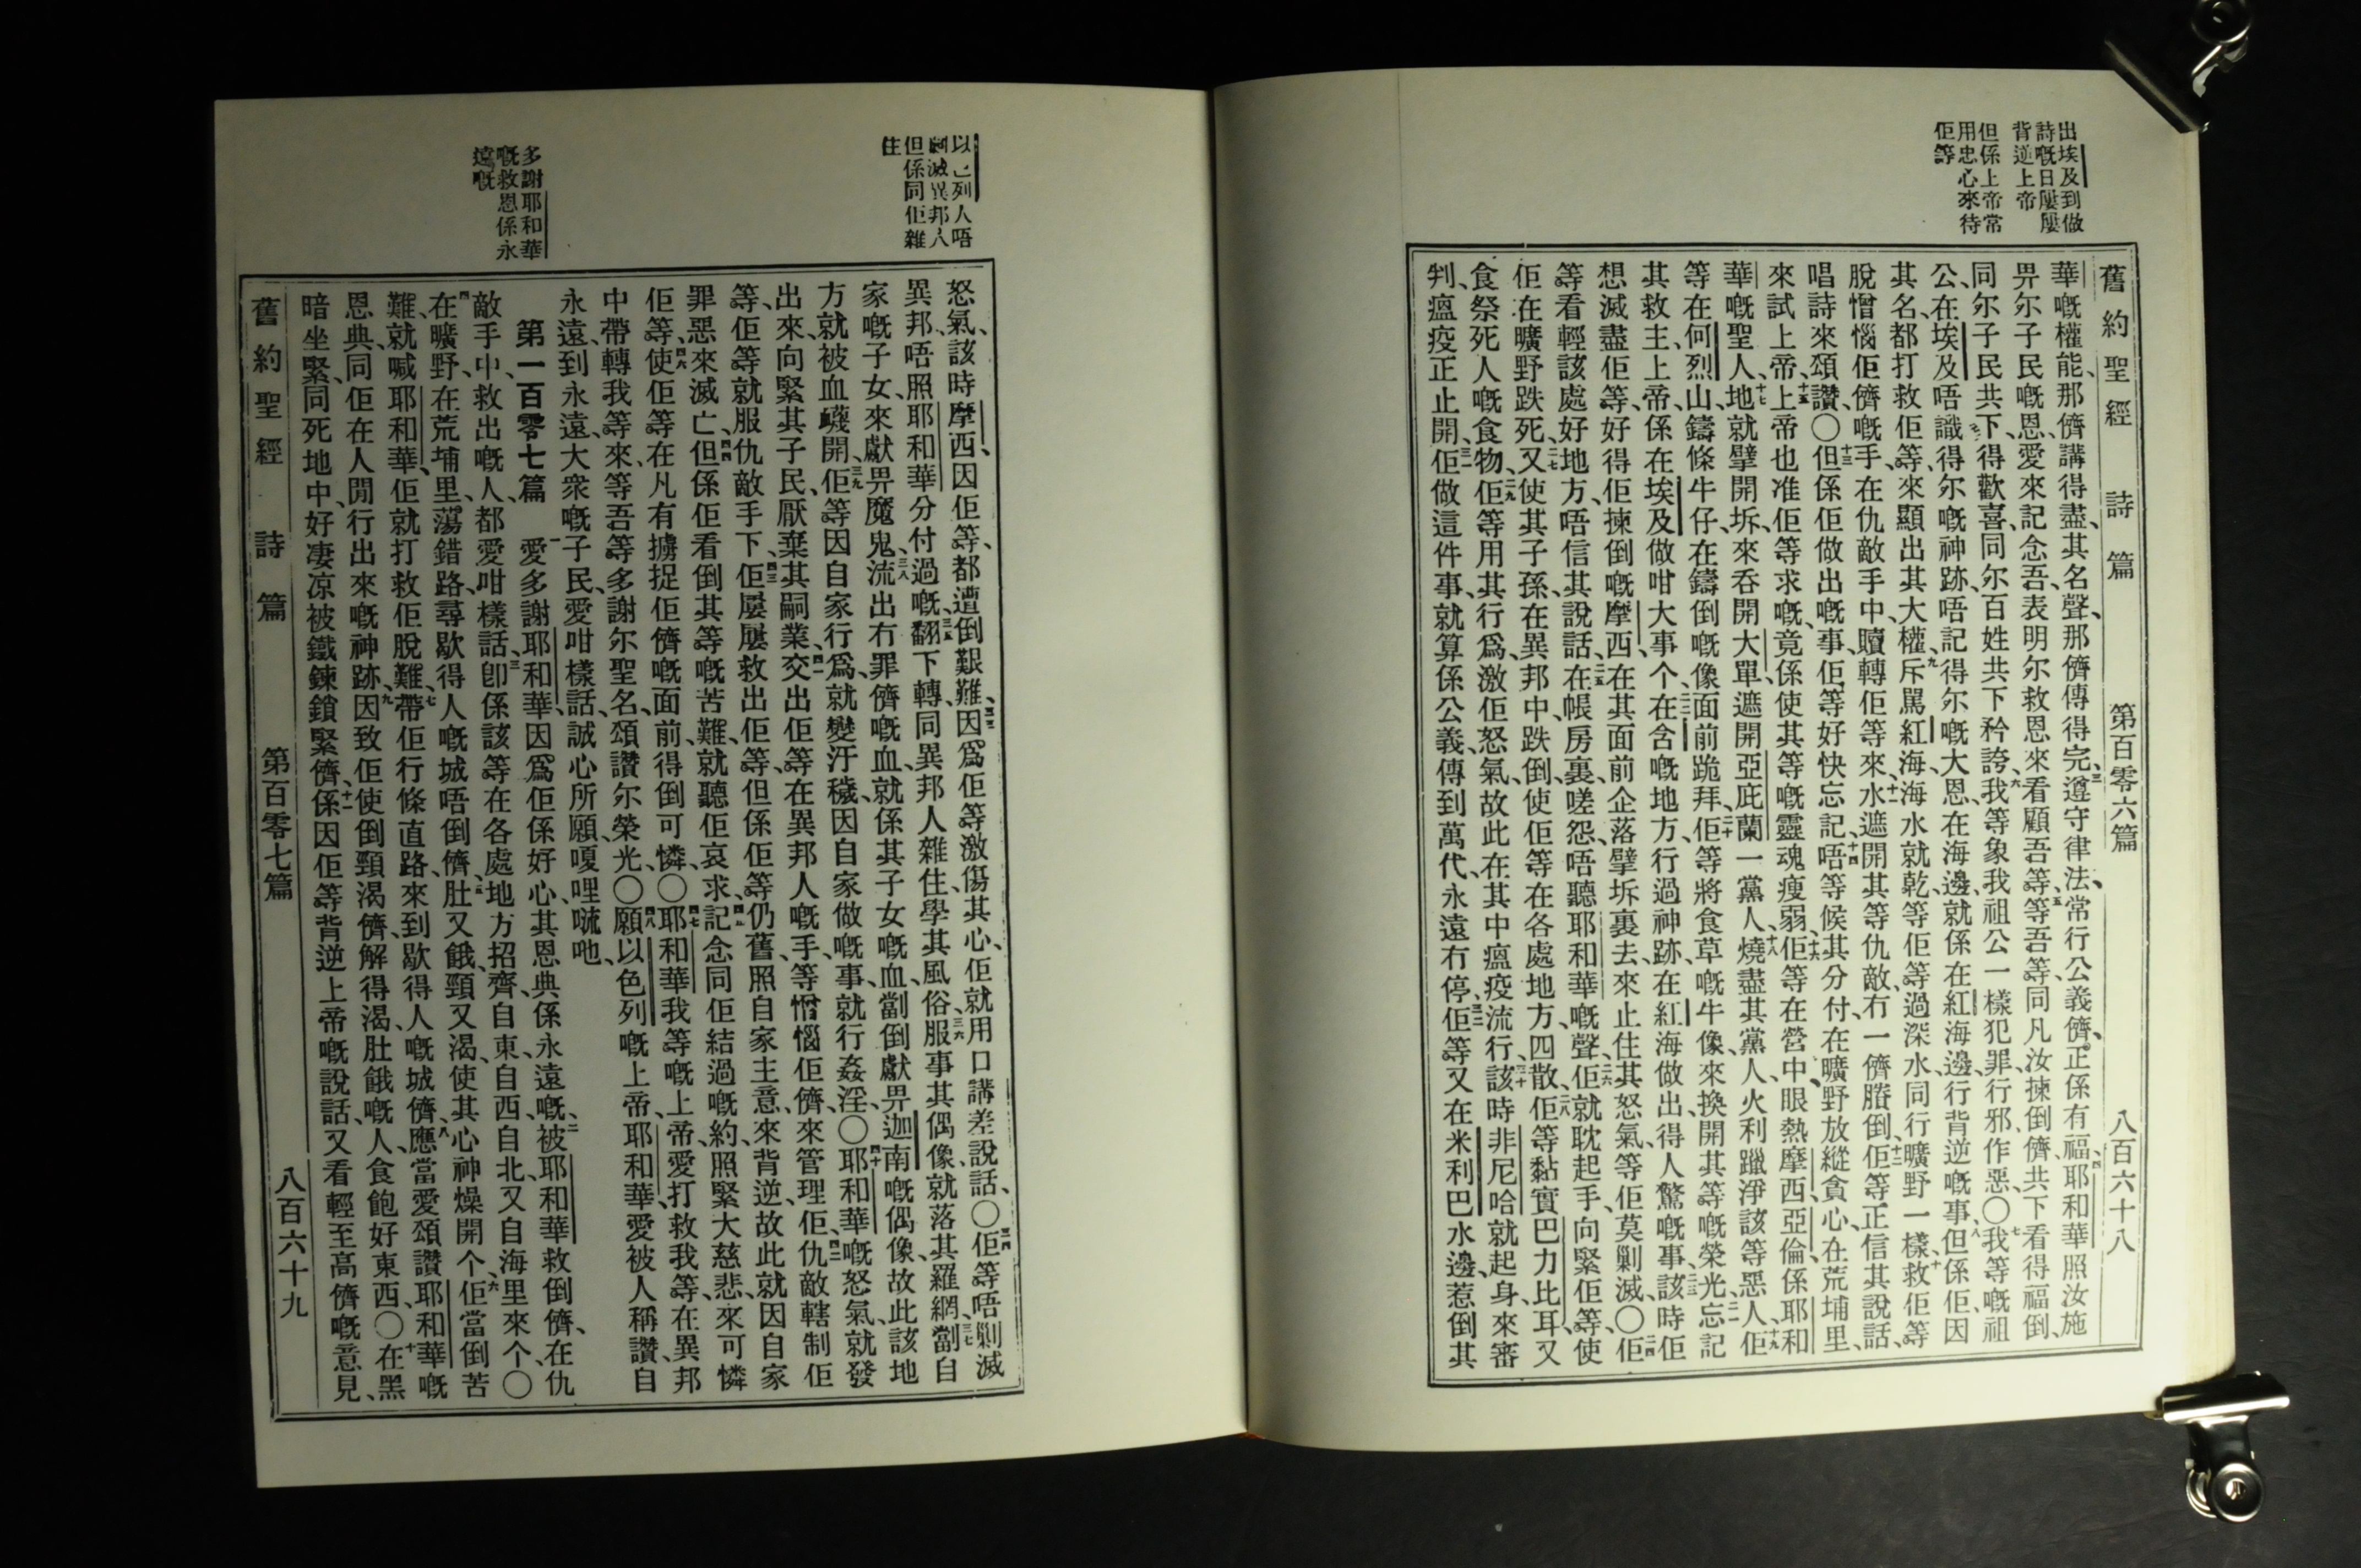 出埃及到做
詩嘅日屢屢
背逆上帝
但係上帝常
用忠心來待
佢等
舊約聖經 詩篇 第百零六篇 八百六十八
華嘅權能、那儕講得盡、其名聲、那儕傳得完、三遵守律法、常行公義儕、正係有福、四耶和華照汝施
畀尔子民嘅恩愛來記念吾、表明尔救恩來看顧吾等、五等吾等同凡汝揀倒儕共下看得福倒、
同尔子民共下得歡喜、同尔百姓共下矜誇、六我等象我祖公一樣犯罪、行邪作惡、〇七我等嘅祖
公、在埃及唔識得尔嘅神跡、唔記得尔嘅大恩、在海邊、就係在紅海邊、行背逆嘅事、八但係佢因
其名、都打救佢等、來顯出其大權、九斥罵紅海、海水就乾、等佢等過深水、同行曠野一樣、十救佢等
脫憎惱佢儕嘅手、在仇敵手中、贖轉佢等來、十一水遮開其等仇敵、冇一儕賸倒、十二佢等正信其說話、
唱詩來頌讚、〇十三但係佢做出嘅事、佢等好快忘記、唔等候其分付、十四在曠野放縱貪心、在荒埔里、
來試上帝、十五上帝也准佢等求嘅、竟係使其等嘅靈魂瘦弱、十六佢等在營中、眼熱摩西、亞倫、係耶和
華嘅聖人、十七地就擘開坼、來吞開大單、遮開亞庇蘭一黨人、十八燒盡其黨人、火利躐淨該等惡人、十九佢
等在何烈山、鑄條牛仔、在鑄倒嘅像面前跪拜、二十佢等將食草嘅牛像、來換開其等嘅榮光、二一忘記
其救主上帝、係在埃及做咁大事个、二二在含嘅地方、行過神跡、在紅海做出得人驚嘅事、二三該時佢
想滅盡佢等、好得佢揀倒嘅摩西、在其面前企落擘坼裏去、來止住其怒氣、等佢莫剿滅、〇二四佢
等看輕該處好地方、唔信其說話、二五在帳房裏、嗟怨、唔聽耶和華嘅聲、二六佢就耽起手、向緊佢等、使
佢在曠野跌死、二七又使其子孫、在異邦中跌倒、使佢等在各處地方四散、二八佢等黏實巴力比耳、又
食祭死人嘅食物、二九佢等用其行爲、激佢怒氣、故此在其中瘟疫流行、三十該時非尼哈就起身、來審
判、瘟疫正止開、三一佢做這件事、就算係公義、傳到萬代、永遠冇停、三二佢等又在米利巴水邊、惹倒其
以色列人唔
剿滅異邦人
但係同佢雜
住
多謝耶和華
嘅救恩係永
遠嘅
怒氣、該時摩西、因佢等、都遭倒艱難、三三因爲佢等激傷其心、佢就用口講差說話、〇三四佢等唔剿滅
異邦、唔照耶和華分付過嘅、三五翻下轉同異邦人雜住、學其風俗、三六服事其偶像、就落其羅網、三七劏自
家嘅子女、來獻畀魔鬼、三八流出冇罪儕嘅血、就係其子女嘅血、劏倒獻畀迦南嘅偶像、故此該地
方就被血衊開、三九佢等因自家行爲、就變汙穢、因自家做嘅事、就行姦淫、〇四十耶和華嘅怒氣、就發
出來、向緊其子民、厭棄其嗣業、四一交出佢等、在異邦人嘅手、等憎惱佢儕、來管理佢、四二仇敵轄制佢
等、佢等就服仇敵手下、四三佢屢屢救出佢等、但係佢等仍舊照自家主意、來背逆、故此就因自家
罪惡來滅亡、四四但係佢看倒其等嘅苦難、就聽佢哀求、四五記念同佢結過嘅約、照緊大慈悲、來可憐
佢等、四六使佢等在凡有擄捉佢儕嘅面前、得倒可憐、〇四七耶和華我等嘅上帝、愛打救我等、在異邦
中帶轉我等來、等吾等多謝尔聖名、頌讚尔榮光、〇四八願以色列嘅上帝、耶和華、愛被人稱讚、自
永遠、到永遠、大衆嘅子民、愛咁樣話、誠心所願、嗄哩㖫吔、
第一百零七篇 一愛多謝耶和華、因爲佢係好心、其恩典、係永遠嘅、二被耶和華救倒儕、在仇
敵手中、救出嘅人、都愛咁樣話、三卽係該等在各處地方招齊、自東、自西、自北、又自海里來个、〇
四在曠野、在荒埔里、蕩錯路、尋歇得人嘅城唔倒儕、五肚又餓、頸又渴、使其心神燥開个、六佢當倒苦
難、就喊耶和華、佢就打救佢脫難、七帶佢行條直路、來到歇得人嘅城儕、八應當愛頌讚耶和華嘅
恩典、同佢在人閒行出來嘅神跡、九因致佢使倒頸渴儕、解得渴、肚餓嘅人、食飽好東西、〇十在黑
暗坐緊、同死地中、好凄凉被鐵鍊鎖緊儕、十一係因佢等背逆上帝嘅說話、又看輕至高儕嘅意見、
舊約聖經 詩篇 第百零七篇 八百六十九